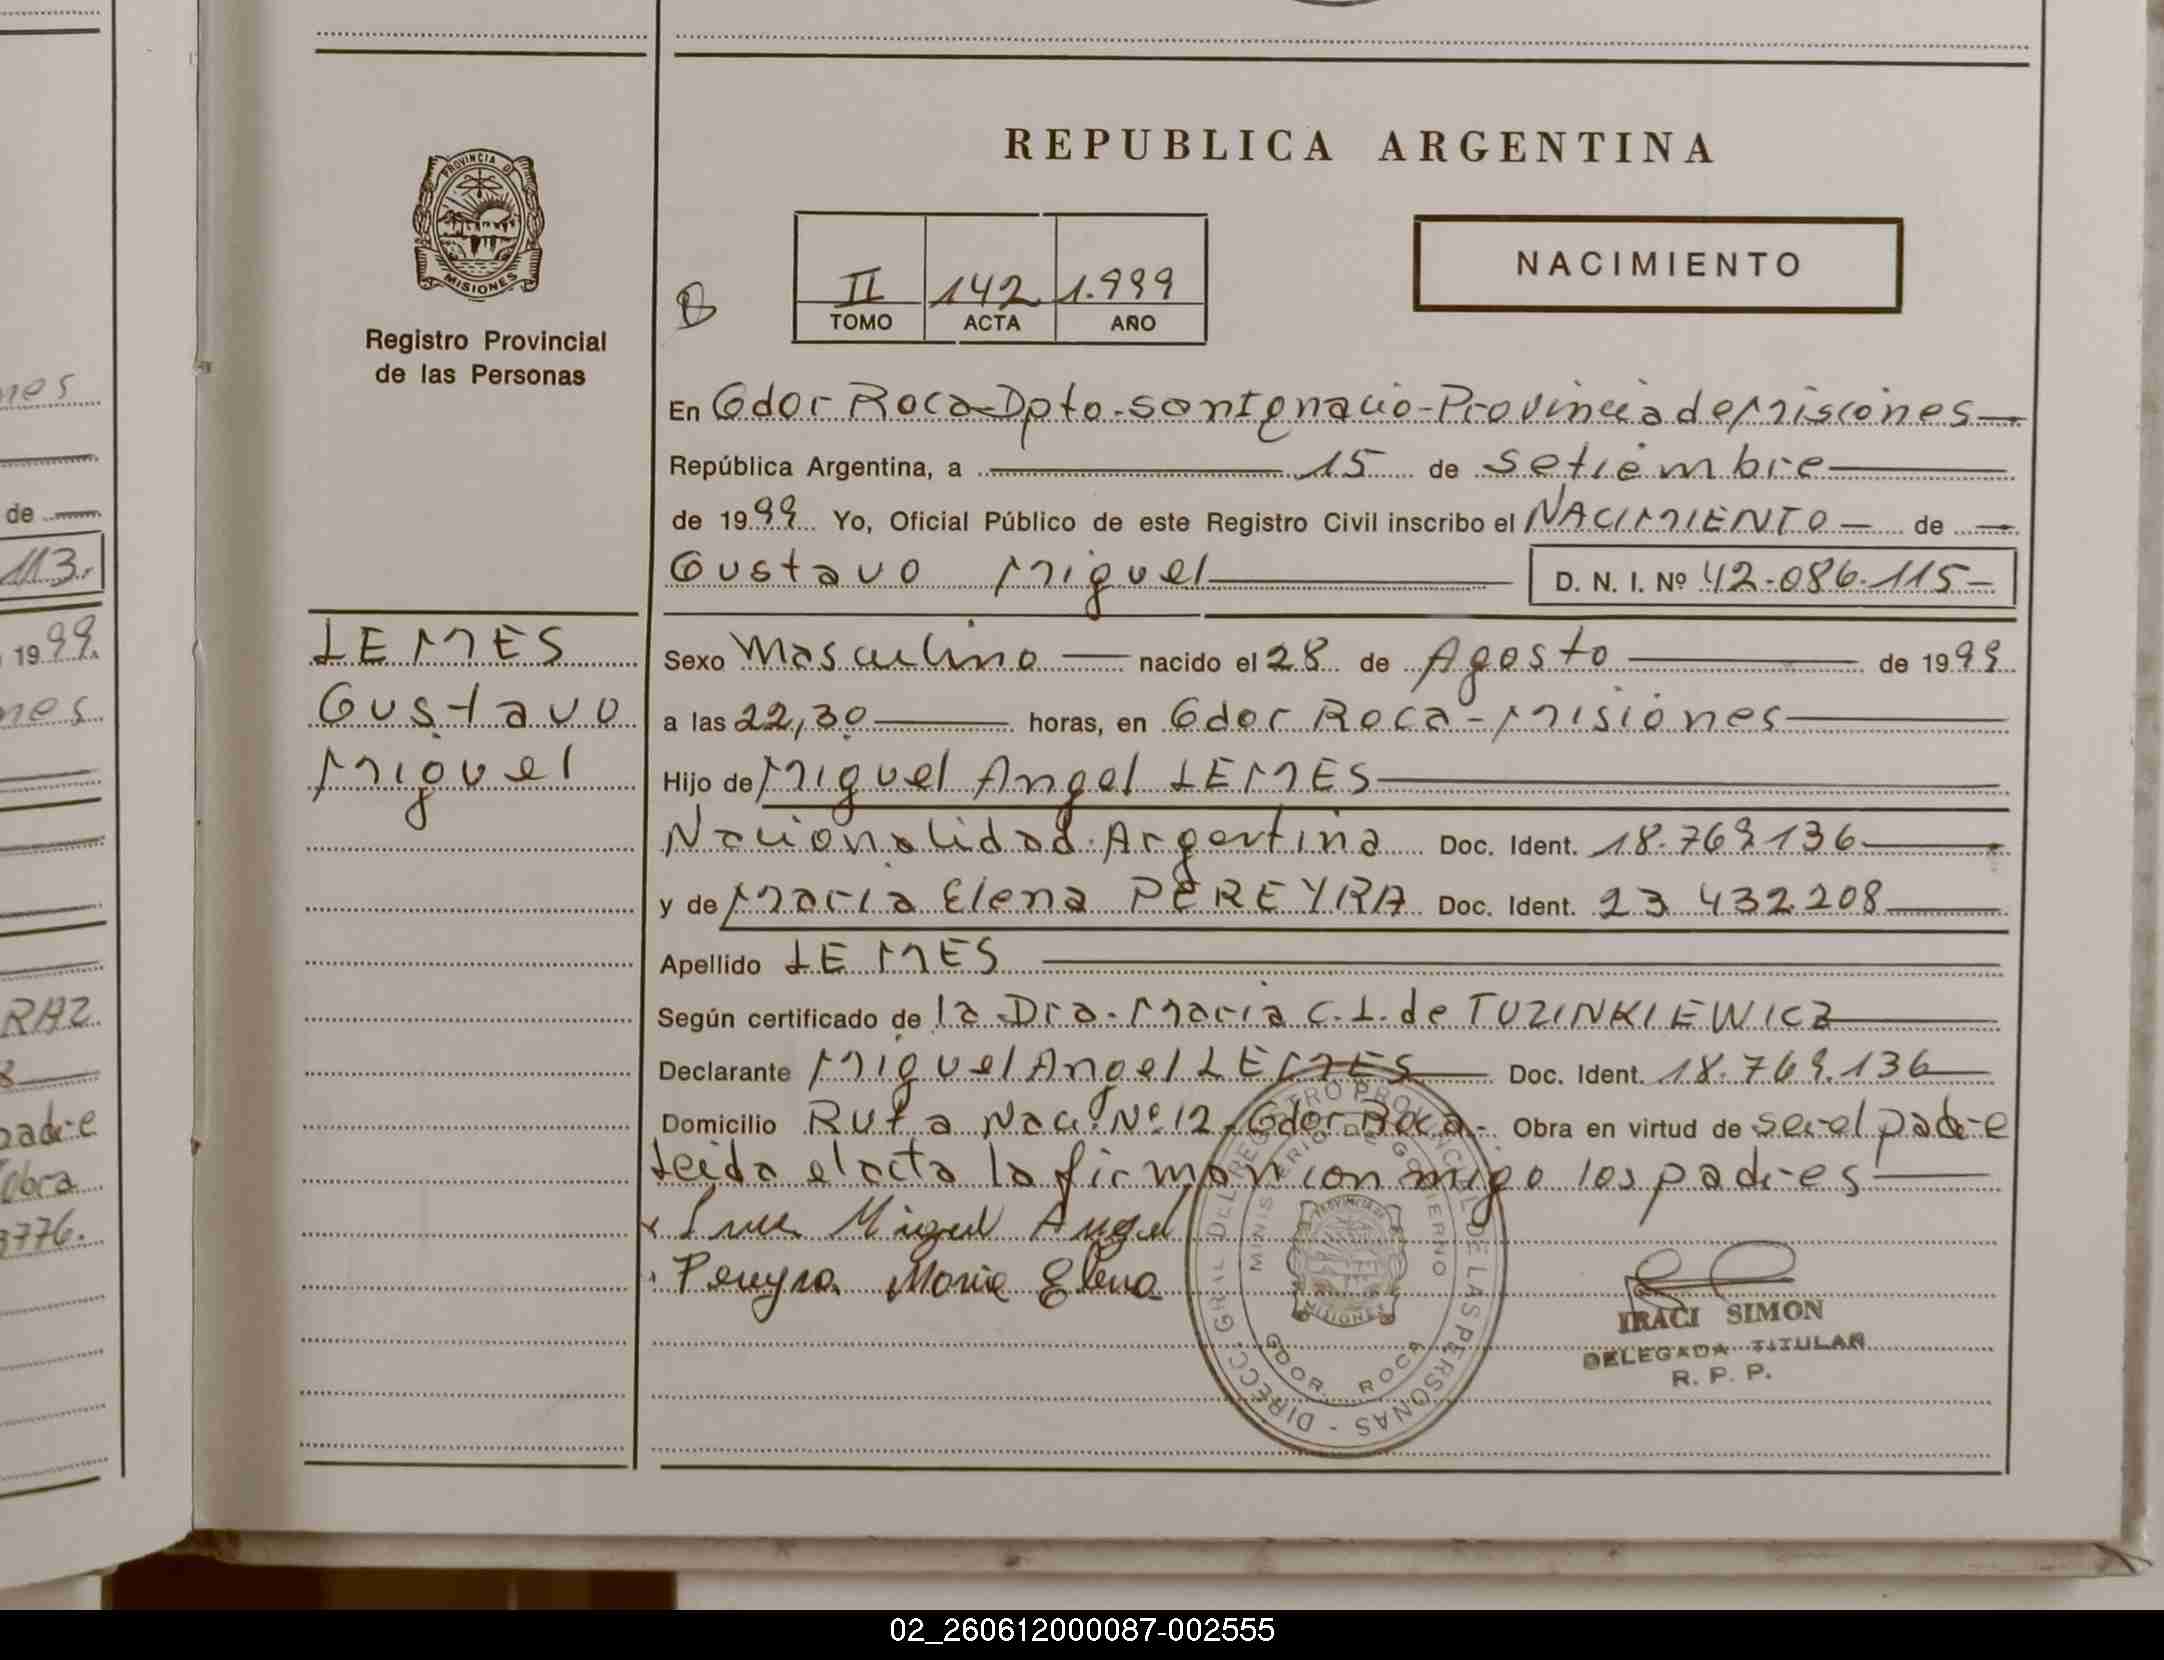 REPUBLICA ARGENTINA
PROVINCIA DE
MISIONES
Registro Provincial
de las Personas
II 142 1.999
TOMO ACTA AÑO
NACIMIENTO
En Gdor Roca-Dpto.-San Ignacio-Provincia de Misiones
República Argentina, a 15 de Setiembre
de 1999 Yo, Oficial Público de este Registro Civil inscribo el NACIMIENTO de
Gustavo Miguel D. N. I. Nº 42.086.115-
LEMES
Gustavo
Miguel
Sexo Masculino nacido el 28 de Agosto de 1999
a las 22,30 horas, en Gdor Roca-Misiones
Hijo de Miguel Angel LEMES
Nacionalidad Argentina Doc. Ident. 18.769.136
y de Maria Elena PEREYRA Doc. Ident. 23.432.208
Apellido LEMES
Según certificado de la Dra. Maria C.L. de TUZINKIEWICZ
Declarante Miguel Angel LEMES Doc. Ident. 18.769.136
Domicilio Ruta Nac. Nº 12-Gdor Roca- Obra en virtud de ser el padre
Leida el acta la firman con migo los padres
Miguel Angel
Pereyra Maria Elena
DIRECC. GRAL DEL REGISTRO PROVINCIAL DE LAS PERSONAS -
MINISTERIO DE GOBIERNO
GDOR. ROCA
MISIONES
IRACI SIMON
DELEGADA TITULAR
R. P. P.
de
113.
1999.
RAZ
padre
Obra
3776.
02_260612000087-002555